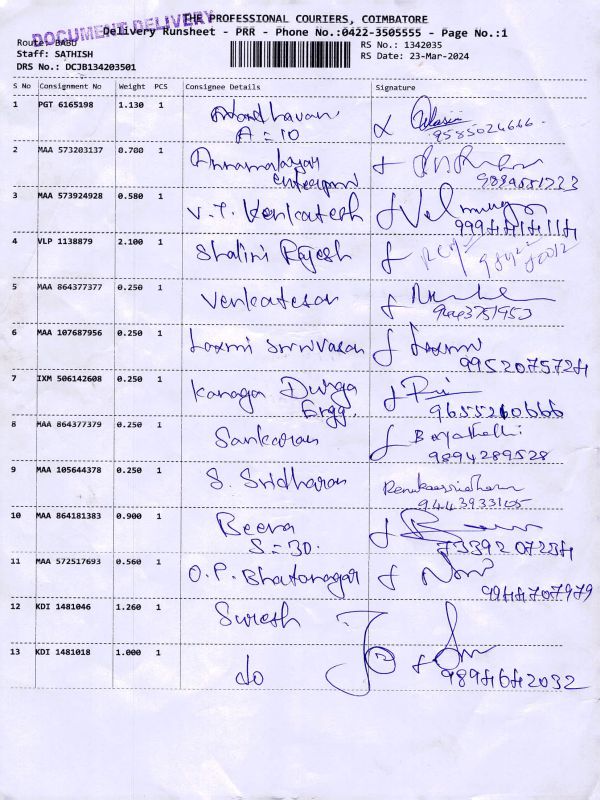 THE PROFESSIONAL COURIERS, COIMBATORE
DOCUMENT DELIVERY
Delivery Runsheet - PRR - Phone No.:0422-3505555 - Page No.:1
Route: BABU
Staff: SATHISH
DRS No.: DCJB134203501
RS No.: 1342035
RS Date: 23-Mar-2024
S No Consignment No Weight PCS Consignee Details Signature
1 PGT 6165198 1.130 1
A = 10
9585024666
2 MAA 573203137 0.700 1 Annamalayar
Enterprises
3 MAA 573924928 0.580 1 V. T. Venkatesh Velmurugan
9994414114
4 VLP 1138879 2.100 1 Shalini Rajesh
5 MAA 864377377 0.250 1 Venkatesan
9443751953
6 MAA 107687956 0.250 1 Laxmi Srinivasan Laxmi
9952075724
7 IXM 506142608 0.250 1 Kanaga Durga
Engg.
9655260666
8 MAA 864377379 0.250 1 Sankaran
9894289528
9 MAA 105644378 0.250 1 S. Sridharan
9443933105
10 MAA 864181383 0.900 1 Beena
S = 30.
7339207234
11 MAA 572517693 0.560 1 O. P. Bhatanagar
9944707979
12 KDI 1481046 1.260 1 Suresh
13 KDI 1481018 1.000 1 do
12
9894642032